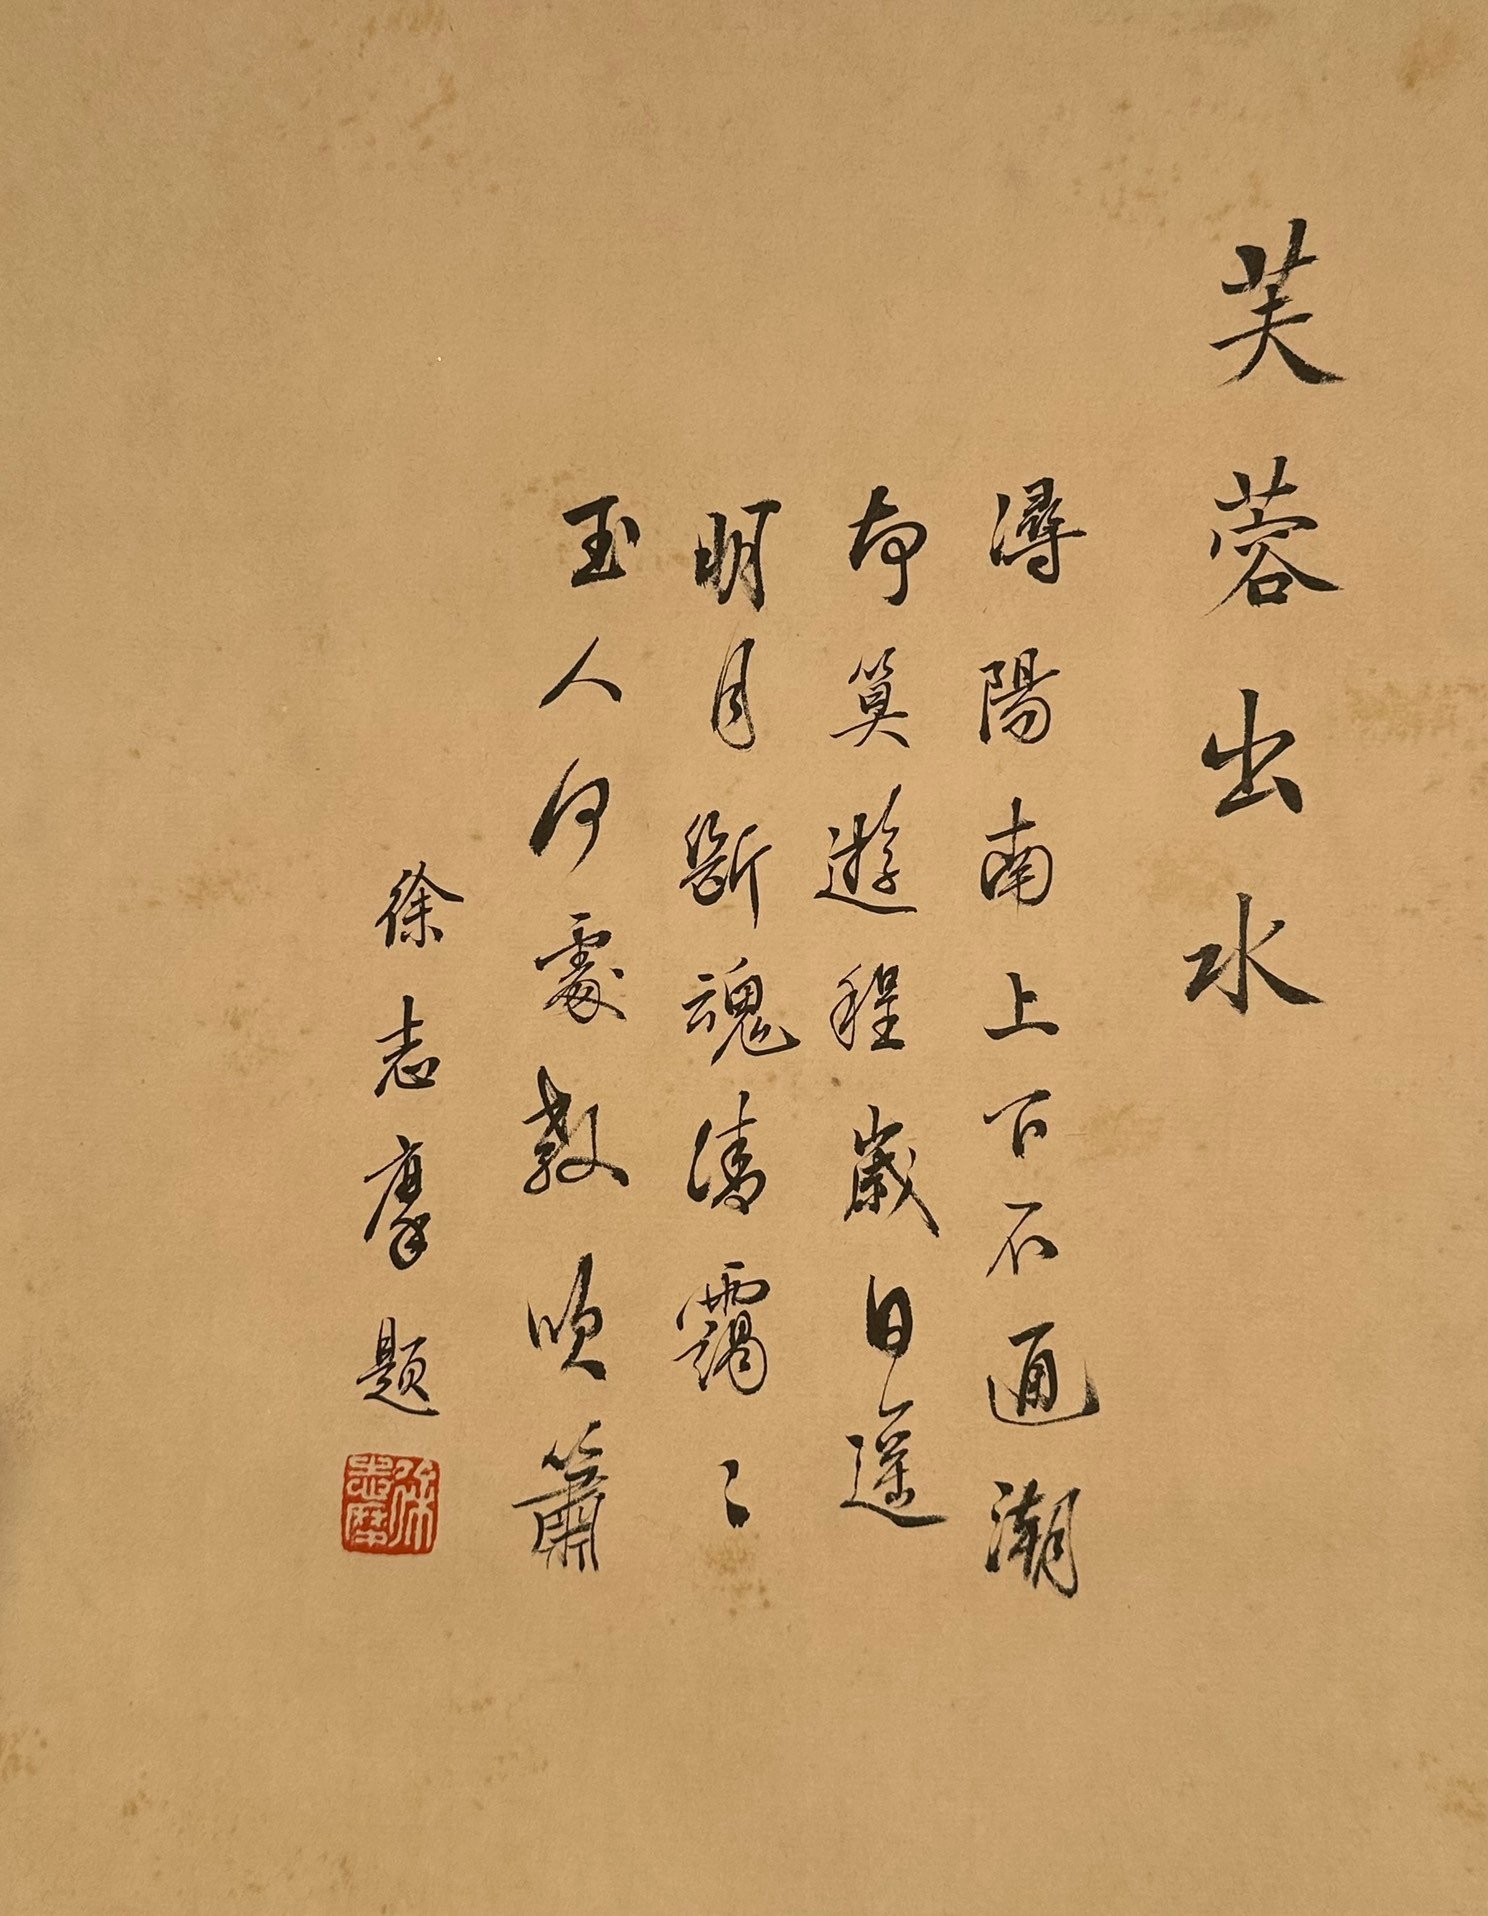 芙蓉出水
潯陽南上不通潮
却算遊程歲日遥
明月斷魂清靄〻
玉人何處教吹簫
徐志摩題
徐志摩